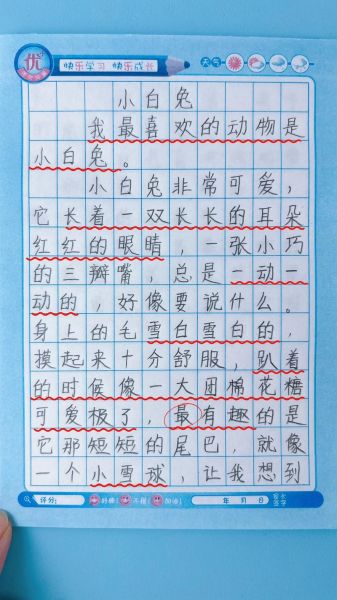 优
快乐学习 快乐成长
天气
小白兔
我最喜欢的动物是
小白兔。
小白兔非常可爱，
它长着一双长长的耳朵
红红的眼睛，一张小巧
的三瓣嘴，总是一动一
动的，好像要说什么。
身上的毛雪白雪白的，
摸起来十分舒服，趴着
的时候像一大团棉花糖
可爱极了，最有趣的是
它那短短的尾巴，就像
一个小雪球，让我想到
评分： 好棒! 不错! 加油! 年 月 日 家长签字